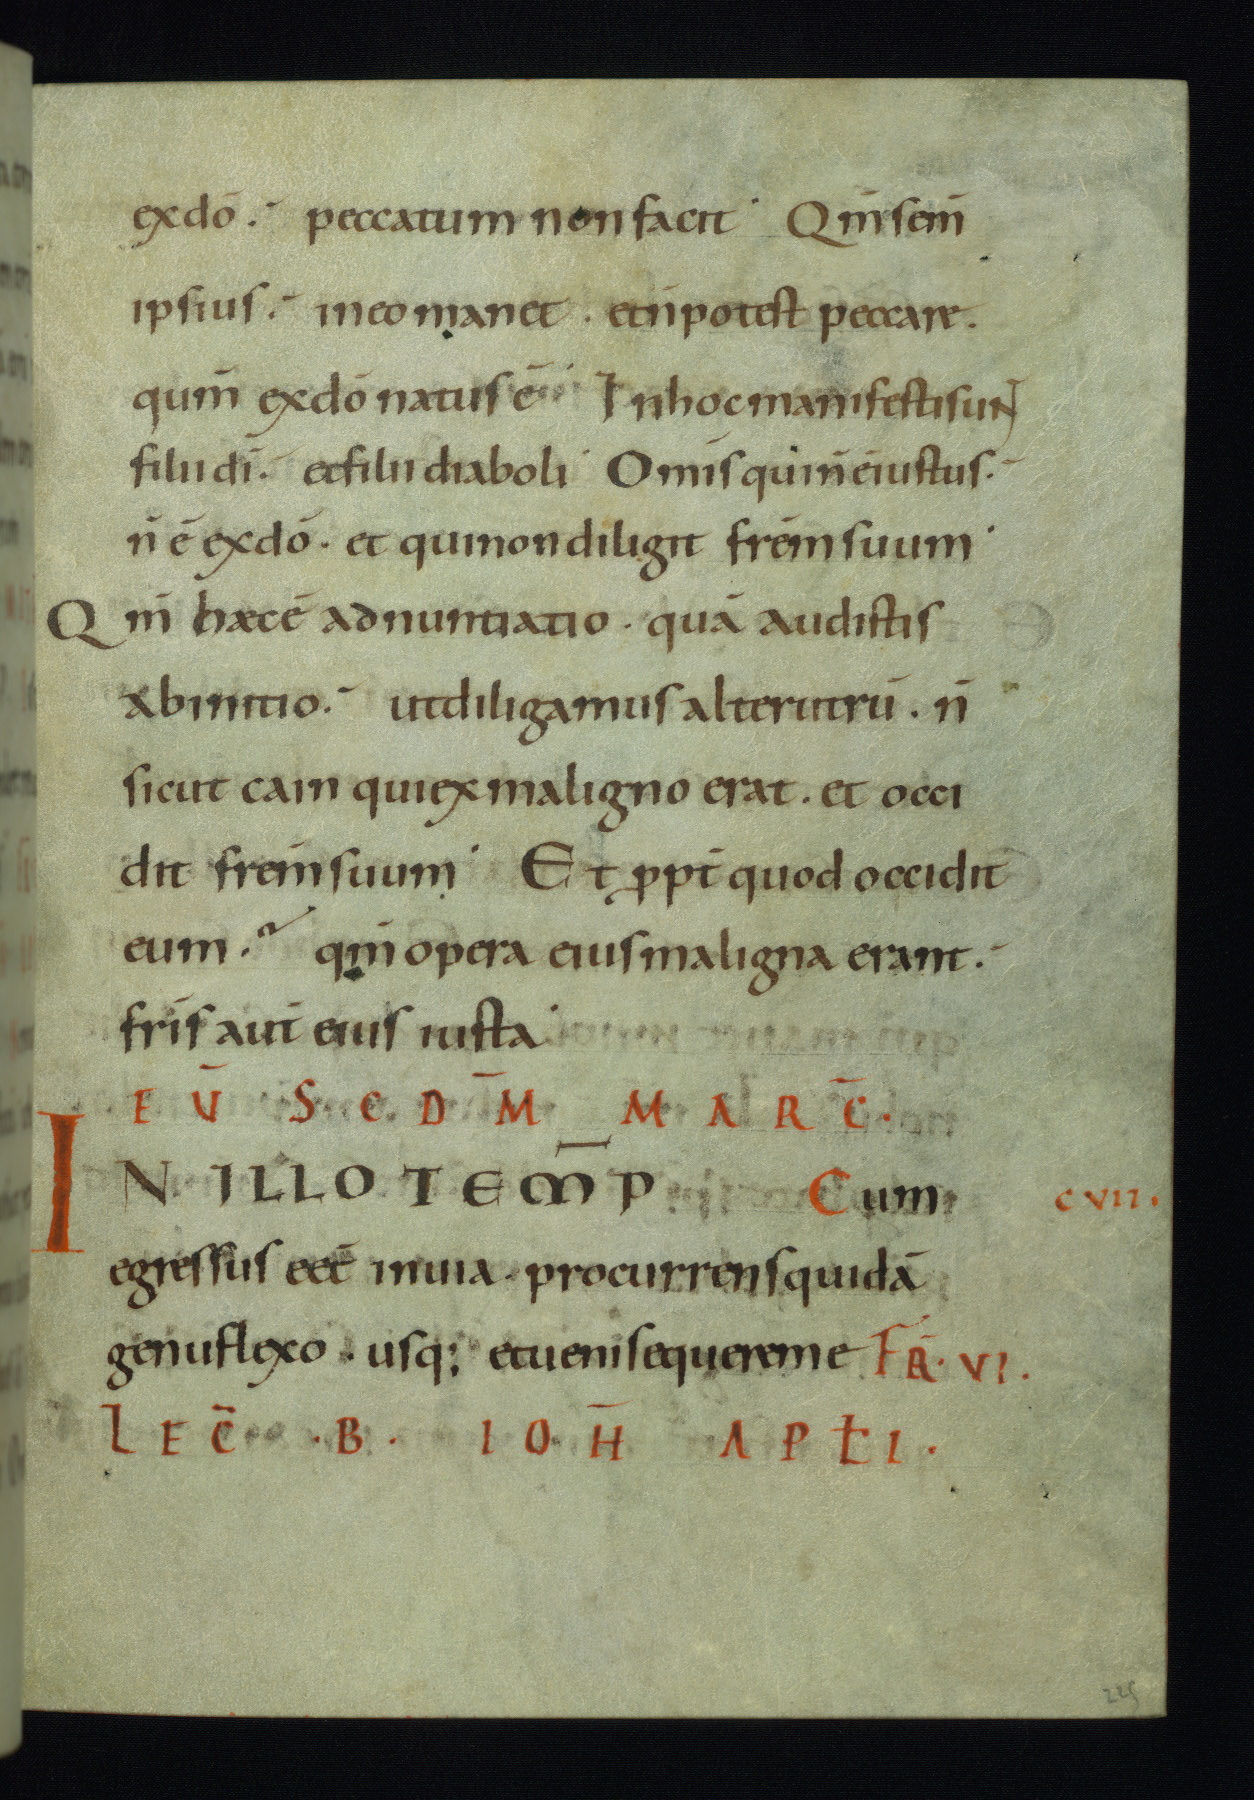 exdō. peccatum non facit. Qm̄ sem̄
ipsius. in eo manet. et n̄ potest peccare.
qum̄ exdō natus ē. In hoc manifesti sunt
filii dī. et filii diaboli. Om̄is qui n̄ ē iustus.
n̄ ē exdō. et qui non diligit fr̄em suum.
Qm̄ hæc ē adnuntiatio. quā audistis
ab initio. ut diligamus alterutrū. n̄
sicut cain qui ex maligno erat. et occi
dit fr̄em suum. Et ꝓpt̄ quod occidit
eum. qm̄ opera eius maligna erant.
fr̄is aut̄ eius iusta.
EV̄ SCDM̄ MARC̄.
IN ILLO TEM̄P Cum CVII.
egressus eet̄ in uia. procurrens quidā
genu flexo. usq; et ueni sequere me FR̄. VI.
LEC̄ .B. IOH̄ APŁI.
225